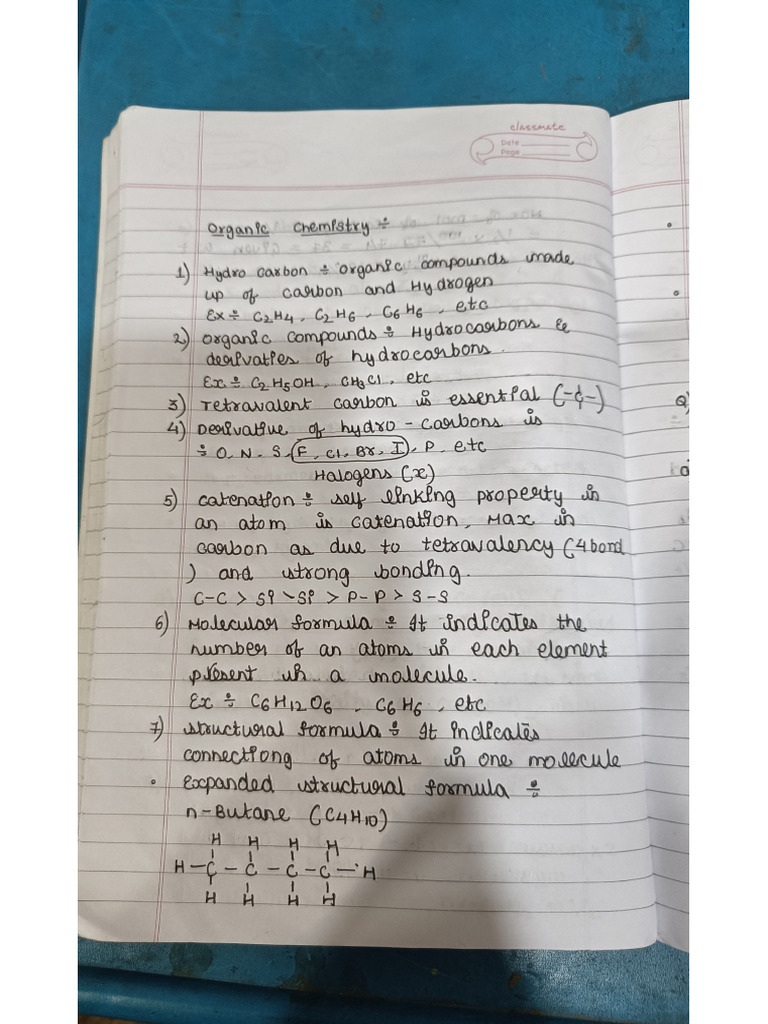 classmate
Date
Page
Organic Chemistry ÷
1) Hydro carbon ÷ Organic compounds made
up of carbon and Hydrogen
Ex ÷ C2H4, C2H6, C6H6, etc
2) Organic compounds ÷ Hydrocarbons &
derivaties of hydrocarbons.
Ex ÷ C2H5OH, CH3Cl, etc
3) Tetravalent carbon is essential (-C-)
4) Derivative of hydro-carbons is
÷ O, N, S, F, Cl, Br, I, P, etc
Halogens (x)
5) Catenation ÷ self linking property in
an atom is catenation, Max in
carbon as due to tetravalency (4 bond
) and strong bonding.
C-C > Si-Si > P-P > S-S
6) Molecular formula ÷ It indicates the
number of an atoms in each element
present in a molecule.
Ex ÷ C6H12O6, C6H6, etc
7) Structural formula ÷ It indicates
connectiong of atoms in one molecule
• Expanded structural formula ÷
n-Butane (C4H10)
H H H H
H-C-C-C-C-H
H H H H
Q)